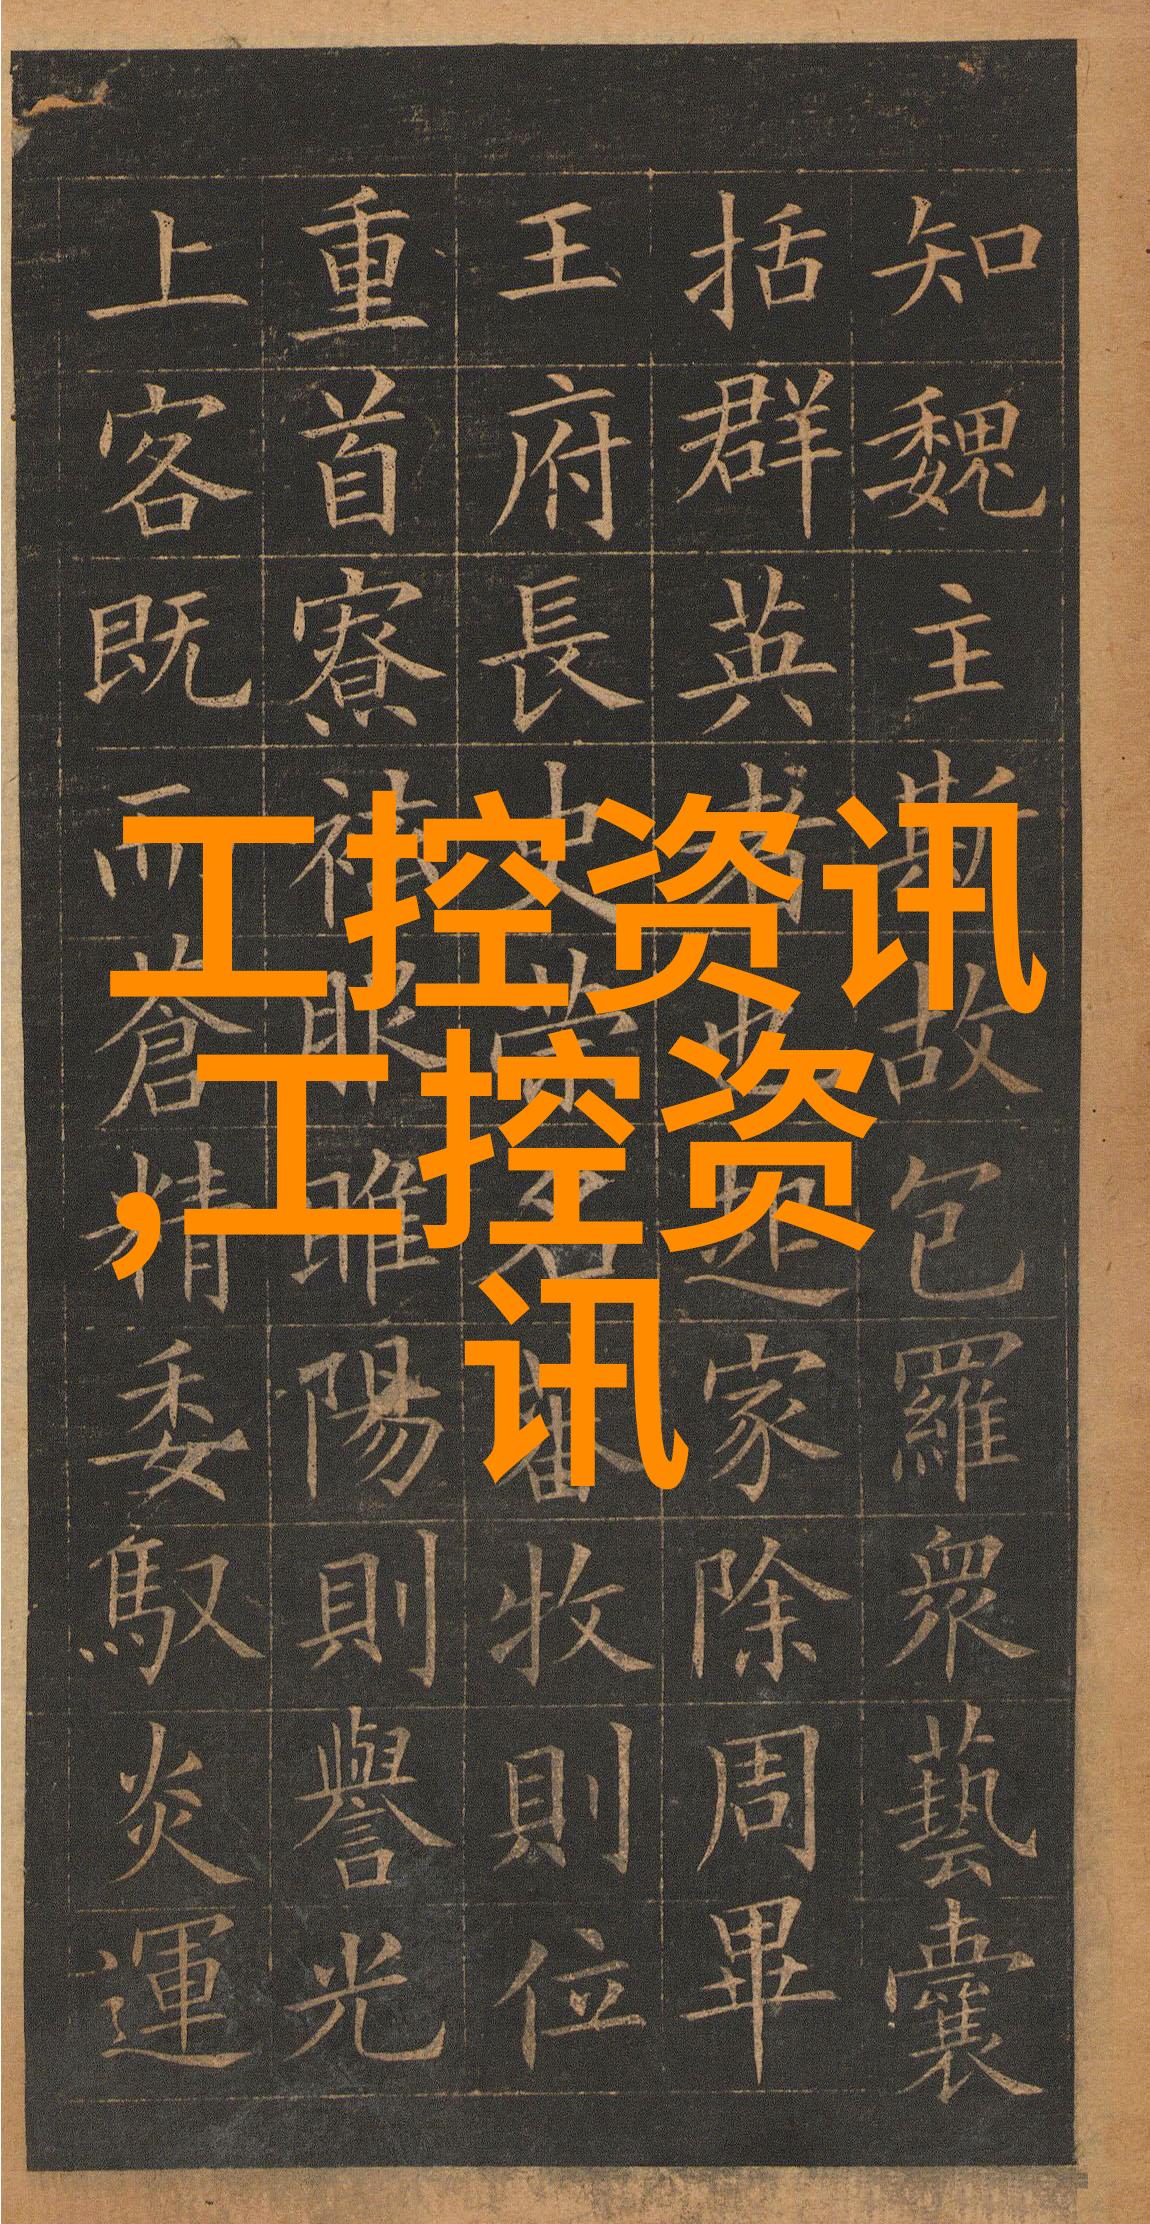 知魏主斯故包羅衆藝囊
括群英者也迯家除周畢
王府長史荣名畨牧則位
重首寮袟眼睢陽則譽光
上客既而蒼精委馭炎運
工控资讯
,工控资
讯